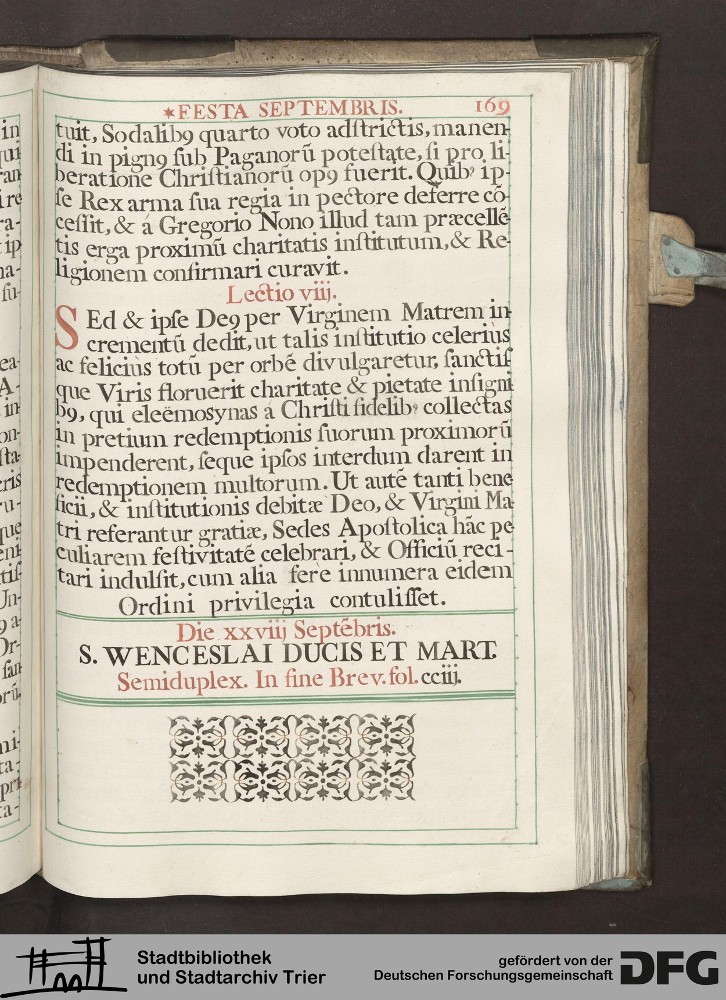 ✶FESTA SEPTEMBRIS. 169
tuit, Sodalibꝯ quarto voto adſtrictis, manen-
di in pignꝯ ſub Paganorū poteſtate, ſi pro li-
beratione Chriſtianorū opꝯ fuerit. Quibꝰ ip-
ſe Rex arma ſua regia in pectore deferre cō
ceſſit, & á Gregorio Nono illud tam præcellē
tis erga proximū charitatis inſtitutum, & Re-
ligionem confirmari curavit.
Lectio viij.
SEd & ipſe Deꝯ per Virginem Matrem in
crementū dedit, ut talis inſtitutio celeriùs
ac feliciùs totū per orbē divulgaretur, ſanctiſ
que Viris floruerit charitate & pietate inſigni
bꝯ, qui eleëmosynas á Chriſti fidelibꝰ collectas
in pretium redemptionis ſuorum proximorū
impenderent, ſeque ipſos interdum darent in
redemptionem multorum. Ut autē tanti bene
ficii, & inſtitutionis debitæ Deo, & Virgini Ma
tri referantur gratiæ, Sedes Apoſtolica hāc pe
culiarem feſtivitatē celebrari, & Officiū reci-
tari indulſit, cum alia ferè innumera eidem
Ordini privilegia contuliſſet.
Die xxviij Septēbris.
S. WENCESLAI DUCIS ET MART.
Semiduplex. In fine Brev. fol. cciij.
in
qui
an
ire
ra-
ip
na-
ſu-
ea-
A-
in
on-
ſta-
ris
ru-
que
eni
tiſ
Un-
ꝯ a-
Or-
ſan
orū,
mi-
ta-
pri
ta-
Stadtbibliothek
und Stadtarchiv Trier
gefördert von der
Deutschen Forschungsgemeinschaft
DFG